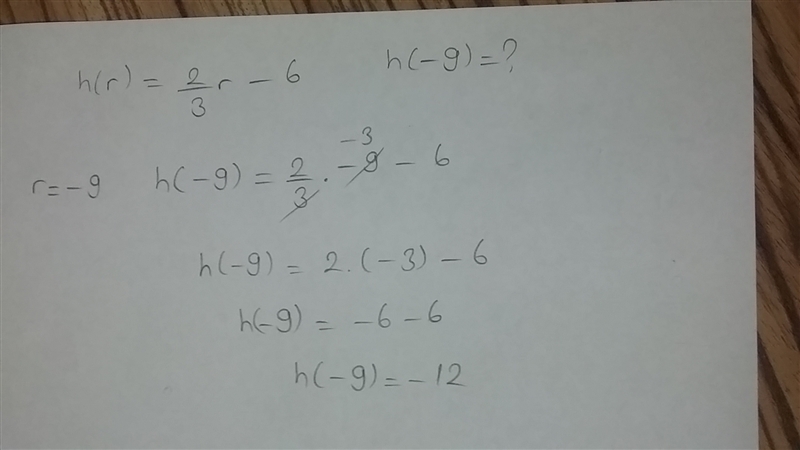 h(r) = 2/3 r - 6 h(-9) = ?
-3
r = -9 h(-9) = 2/3 · -9 - 6
h(-9) = 2 . (-3) - 6
h(-9) = -6 - 6
h(-9) = -12